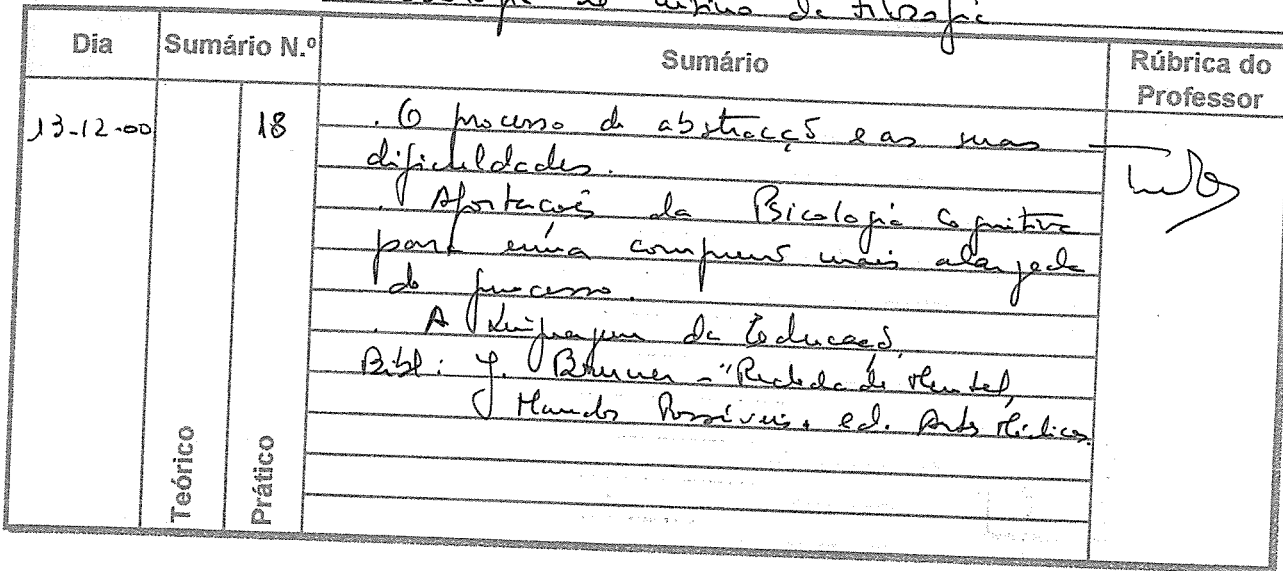 do ensino da Filosofia
Dia
Sumário N.º
Sumário
Rúbrica do
Professor
13-12-00
18
. O processo de abstracçõ e as suas
dificuldades.
. Aportações da Psicologia Cognitiva
para uma compreens mais alargada
do processo.
. A Linguagem da Educação.
Bibl: J. Bruner - "Realidade Mental,
Mundos Possíveis. ed. Artes Médicas
Teórico
Prático